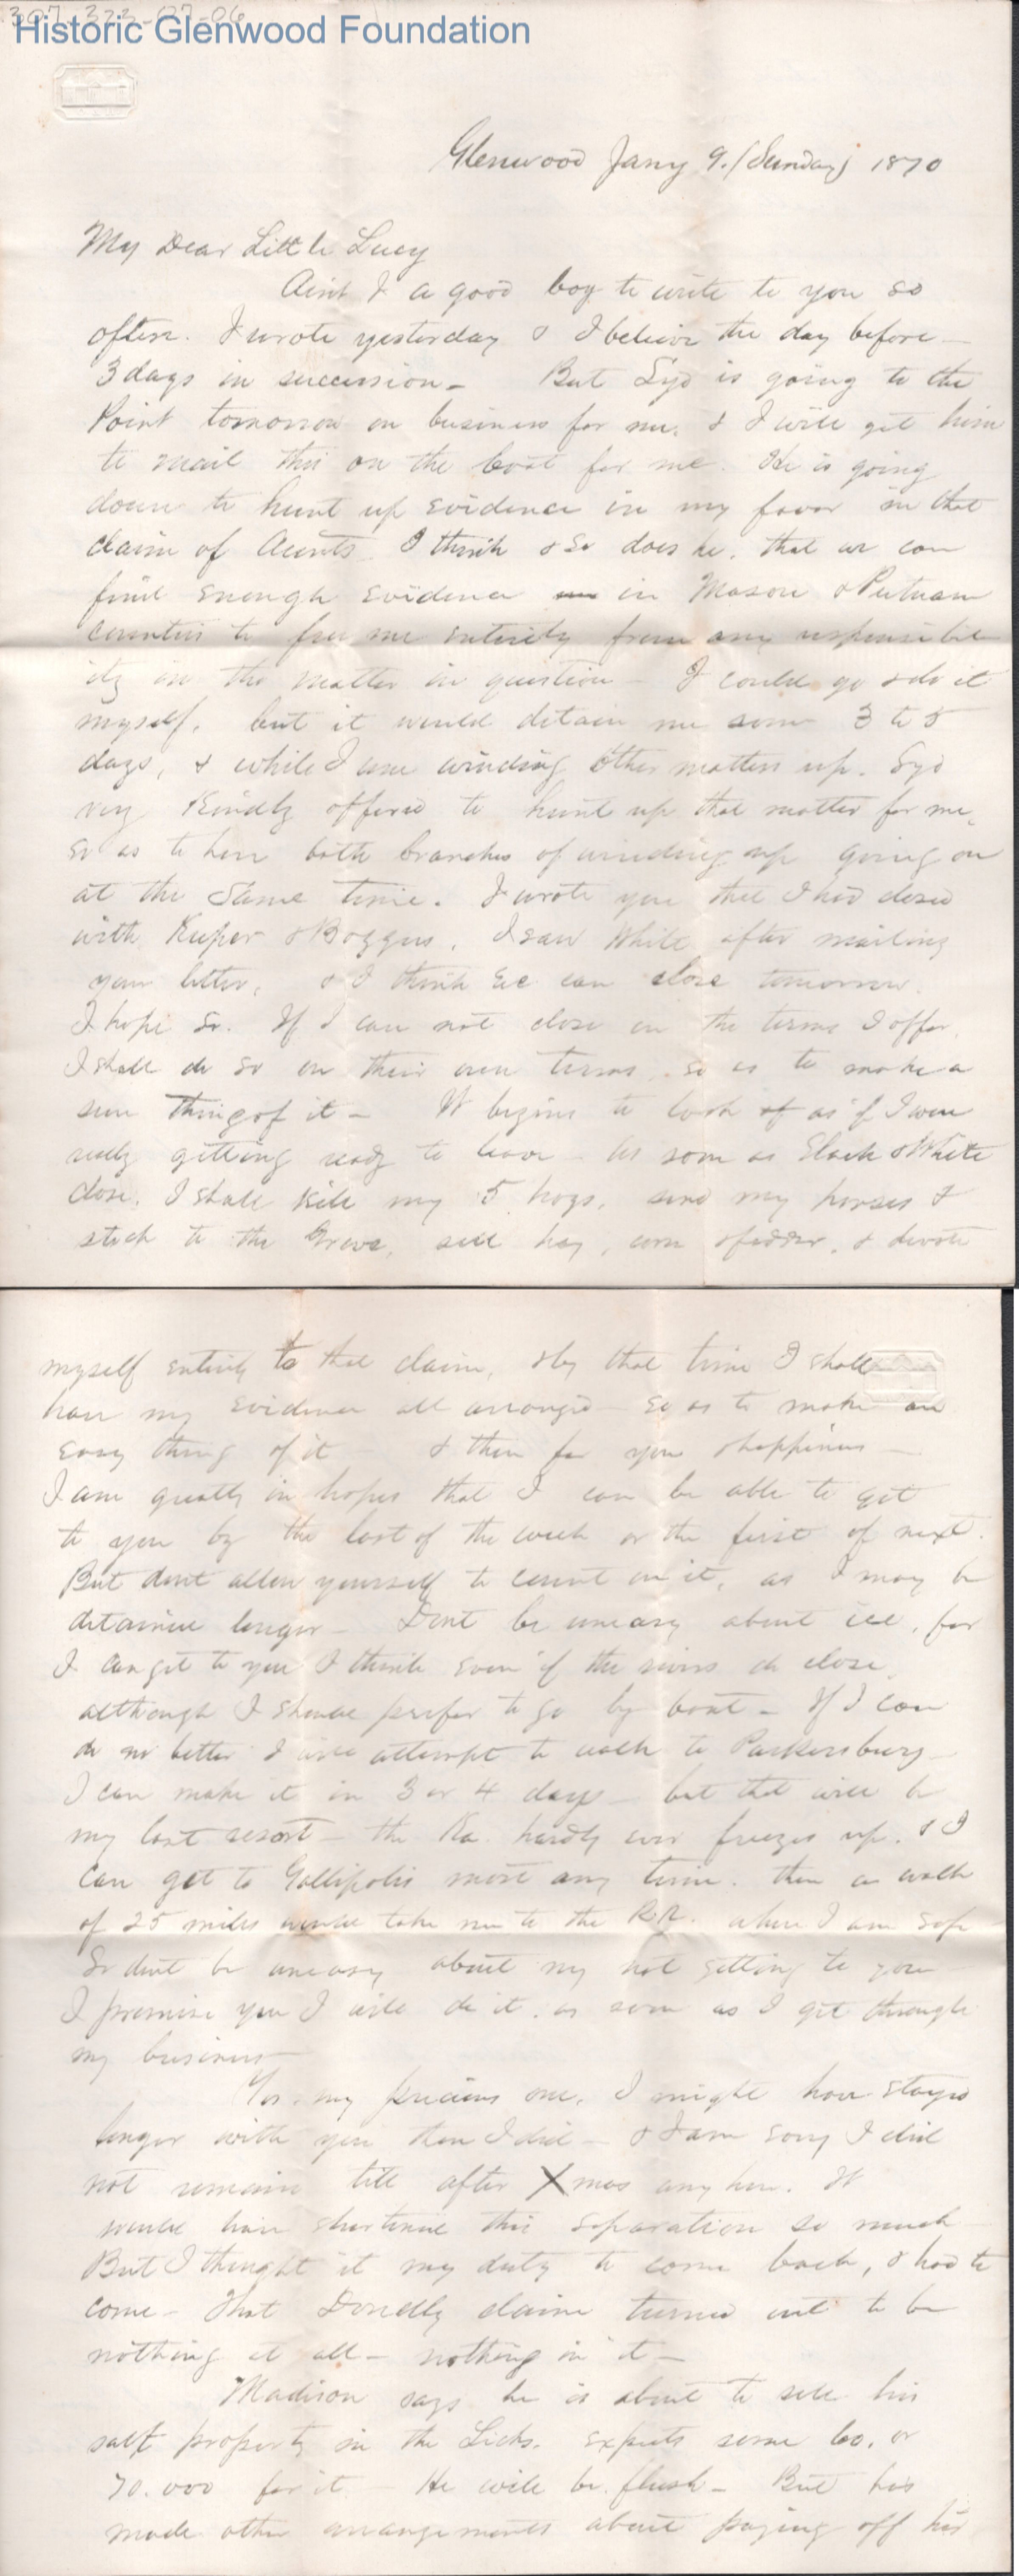 307-323-07-06
Historic Glenwood Foundation
Glenwood Jany 9. (Sunday) 1870
My Dear Little Lucy
Aint I a good boy to write to you so
often. I wrote yesterday & I believe the day before –
3 days in succession – But Syd is going to the
Point tomorrow on business for me. & I will get him
to mail this on the boat for me. He is going
down to hunt up evidence in my favor in that
claim of Aunts. I think & so does he, that we can
find enough evidence in Mason & Putnam
counties to free me entirely from any responsibil
ity in the matter in question – I could go & do it
myself, but it would detain me some 3 to 5
days, & while I am winding other matters up. Syd
very kindly offered to hunt up that matter for me,
so as to have both branches of winding up going on
at the same time. I wrote you that I had closed
with Ruper & Boggess. I saw White after mailing
your letter, & I think we can close tomorrow.
I hope so. If I can not close on the terms I offer,
I shall do so on their own terms, so as to make a
sure thing of it – It begins to look as if I were
really getting ready to leave – As soon as Slack & White
close, I shall kill my 5 hogs, send my horses &
stock to the Grove, sell hay, corn & fodder, & devote
myself entirely to that claim, & by that time I shall
have my evidence all arranged so as to make an
easy thing of it – & then for you & happiness –
I am greatly in hopes that I can be able to get
to you by the last of the week or the first of next.
But dont allow yourself to count on it, as I may be
detained longer – Dont be uneasy about ice, for
I can get to you I think even if the rivers do close,
although I should prefer to go by boat – If I can
do no better I will attempt to walk to Parkersburg –
I can make it in 3 or 4 days – but that will be
my last resort – the Ka. hardly ever freezes up. & I
can get to Gallipolis most any time. then a walk
of 25 miles would take me to the R.R. where I am safe
So dont be uneasy about my not getting to you –
I promise you I will do it. as soon as I get through
my business –
Yes. my precious one, I might have stayed
longer with you than I did – & I am sorry I did
not remain till after Xmas any how. It
would have shortened this separation so much
But I thought it my duty to come back, & had to
come – That Donelly claim turned out to be
nothing at all – nothing in it –
Madison says he is about to sell his
salt property in the Licks. expects some 60. or
70.000 for it – He will be flush – But has
made other arrangements about paying off his